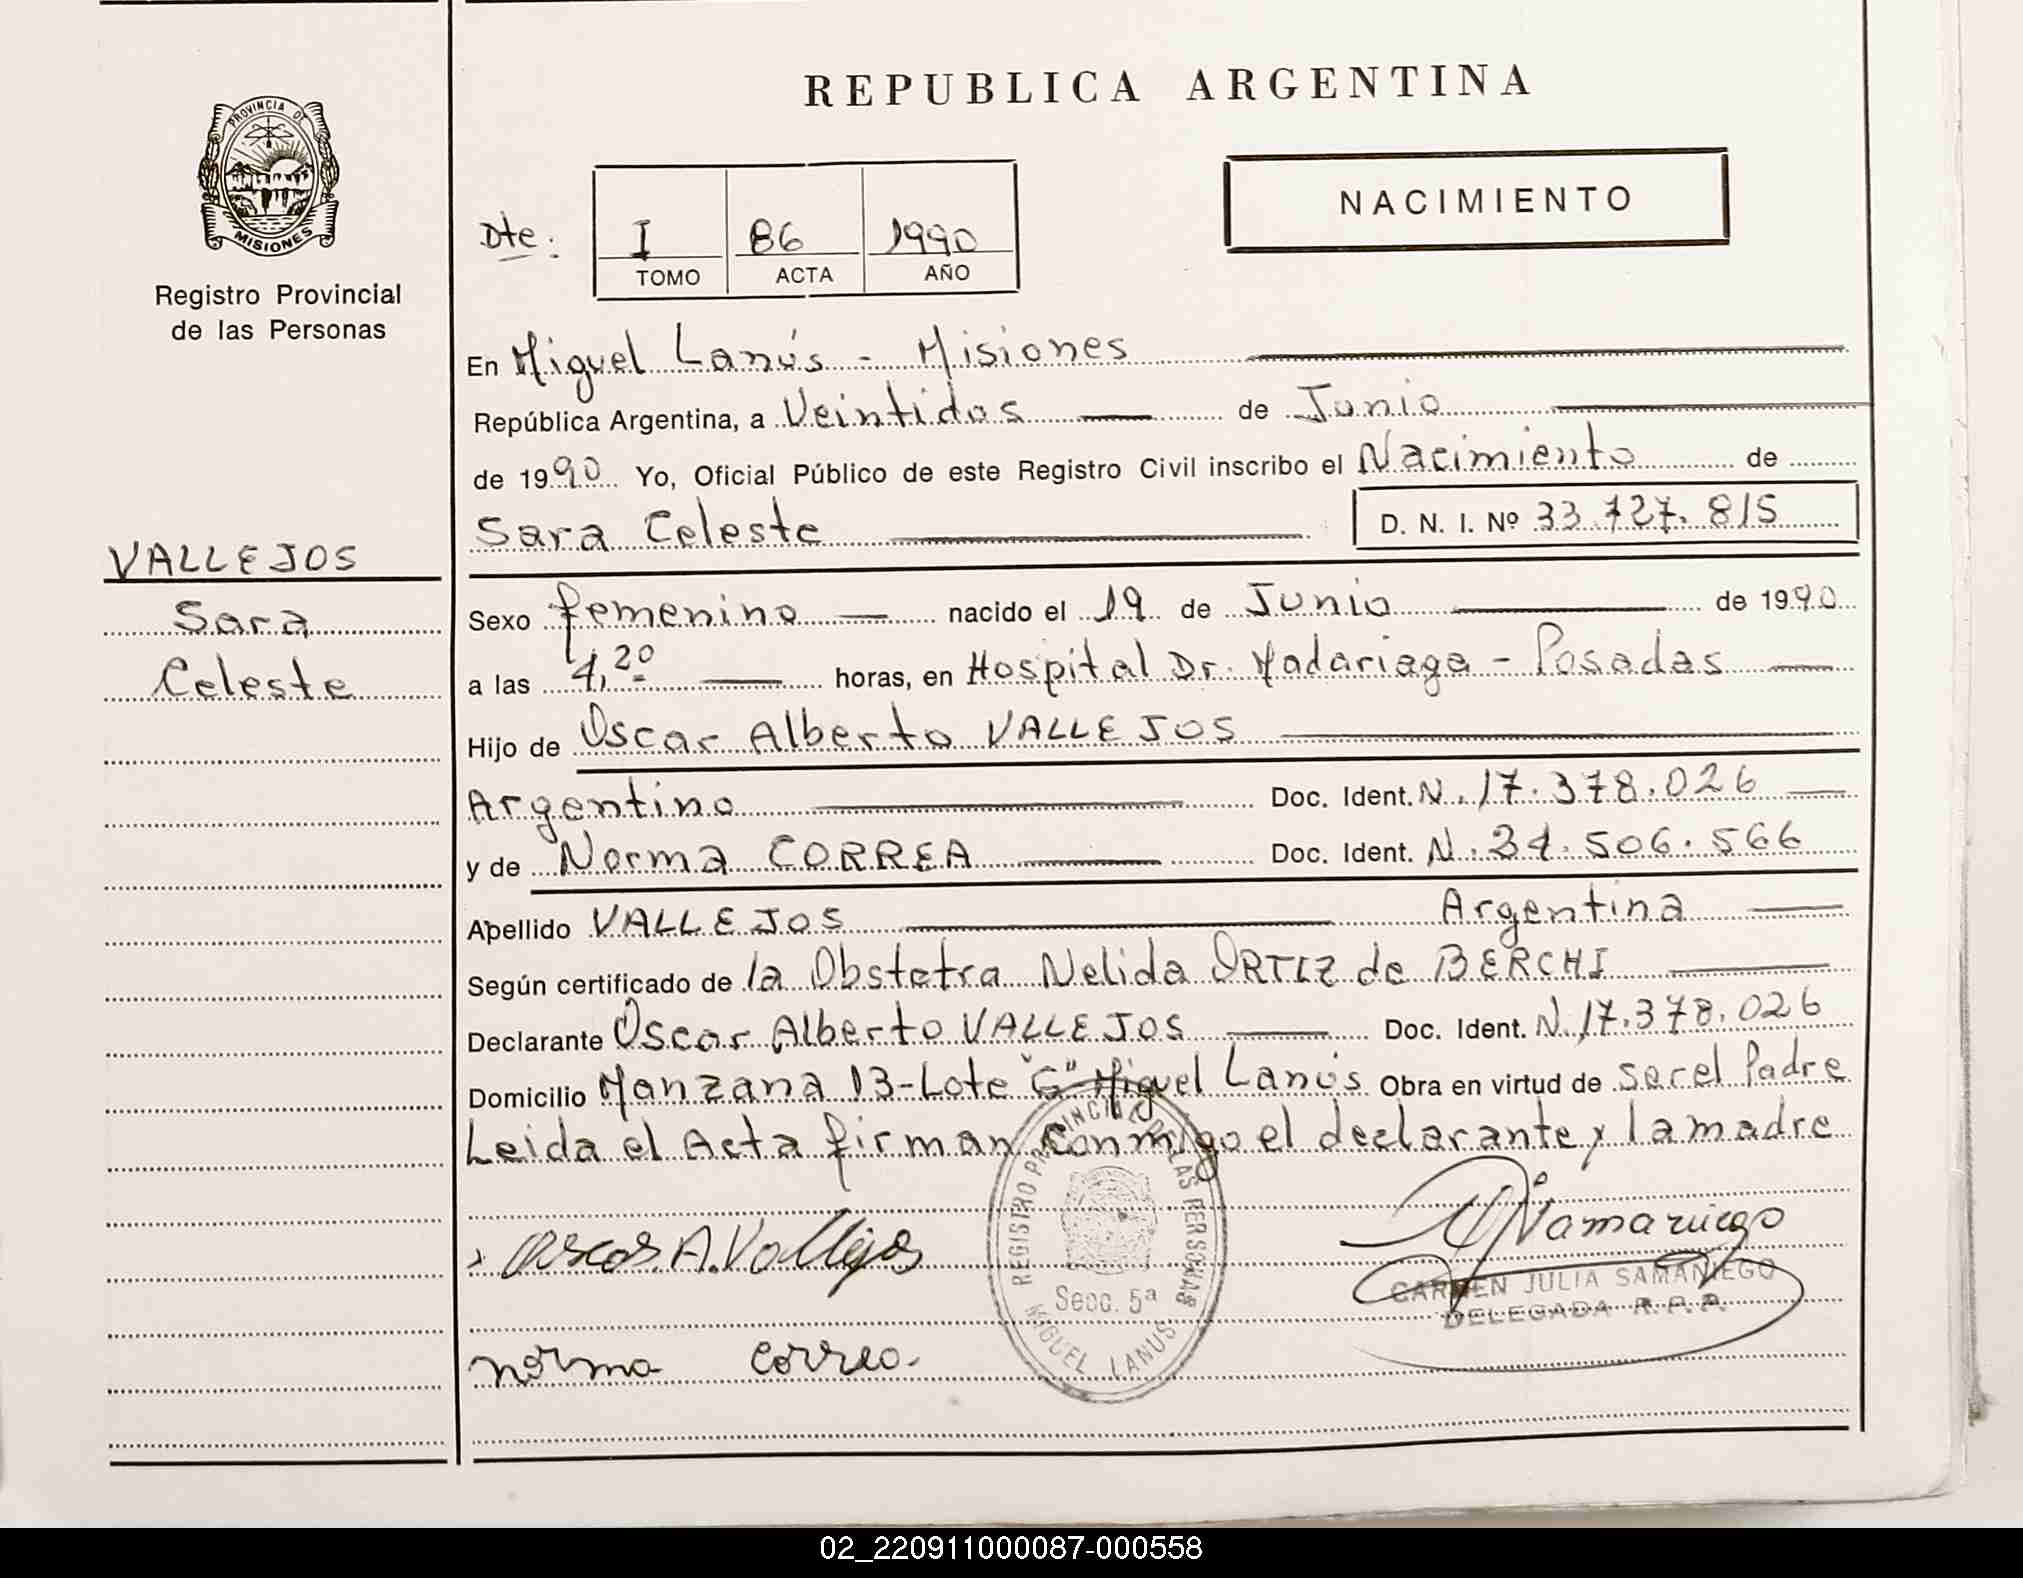 REPUBLICA ARGENTINA
PROVINCIA DE
MISIONES
Registro Provincial
de las Personas
NACIMIENTO
Dte: I 86 1990
TOMO ACTA AÑO
En Miguel Lanús - Misiones
República Argentina, a Veintidos de Junio
de 1990 Yo, Oficial Público de este Registro Civil inscribo el Nacimiento de
Sara Celeste D. N. I. Nº 33.727.815
VALLEJOS
Sara
Celeste
Sexo femenino nacido el 19 de Junio de 1990
a las 4,20 horas, en Hospital Dr. Madariaga - Posadas
Hijo de Oscar Alberto VALLEJOS
Argentino Doc. Ident. N. 17.378.026
y de Norma CORREA Doc. Ident. N. 506.566
Apellido VALLEJOS Argentina
Según certificado de la Obstetra Nelida ORTIZ de BERCHI
Declarante Oscar Alberto VALLEJOS Doc. Ident. N. 17.378.026
Domicilio Manzana 13-Lote "G" Miguel Lanús Obra en virtud de ser el Padre
Leida el Acta firman conmigo el declarante y la madre
Oscar A. Vallejos
REGISTRO PROVINCIAL DE LAS PERSONAS
Secc. 5ª
MIGUEL LANUS
CARMEN JULIA SAMANIEGO
DELEGADA R.P.P.
norma correa.
02_220911000087-000558